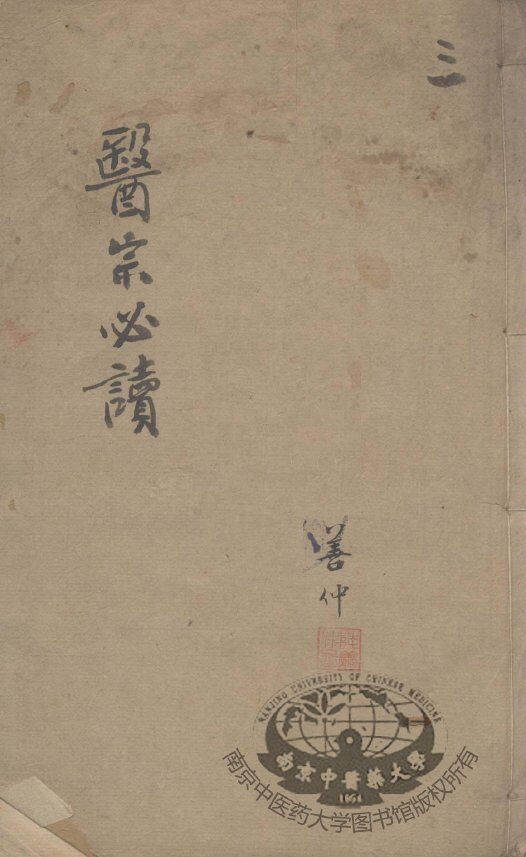 三
醫宗必讀
善仲
NANJING UNIVERSITY OF CHINESE MEDICINE
南京中醫藥大學
1954
南京中医药大学图书馆版权所有